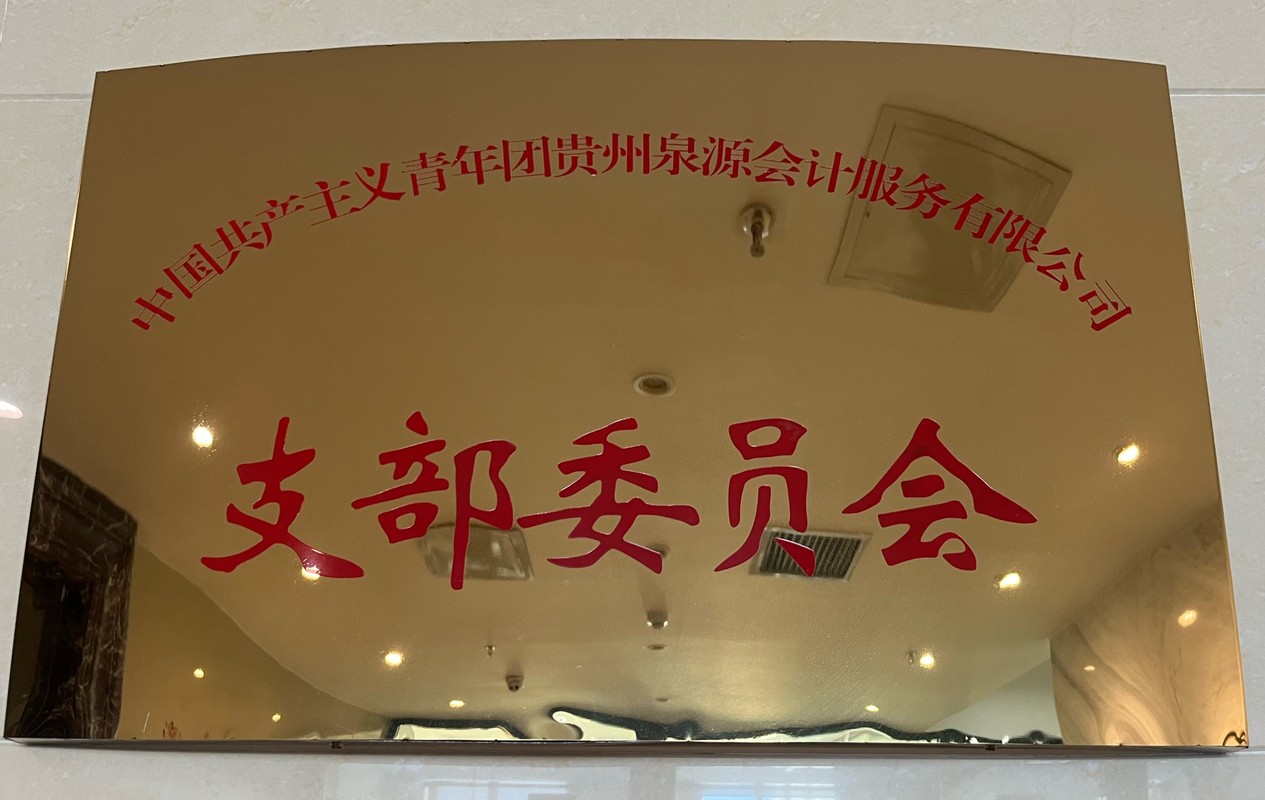 中国共产主义青年团贵州泉源会计服务有限公司
支部委员会